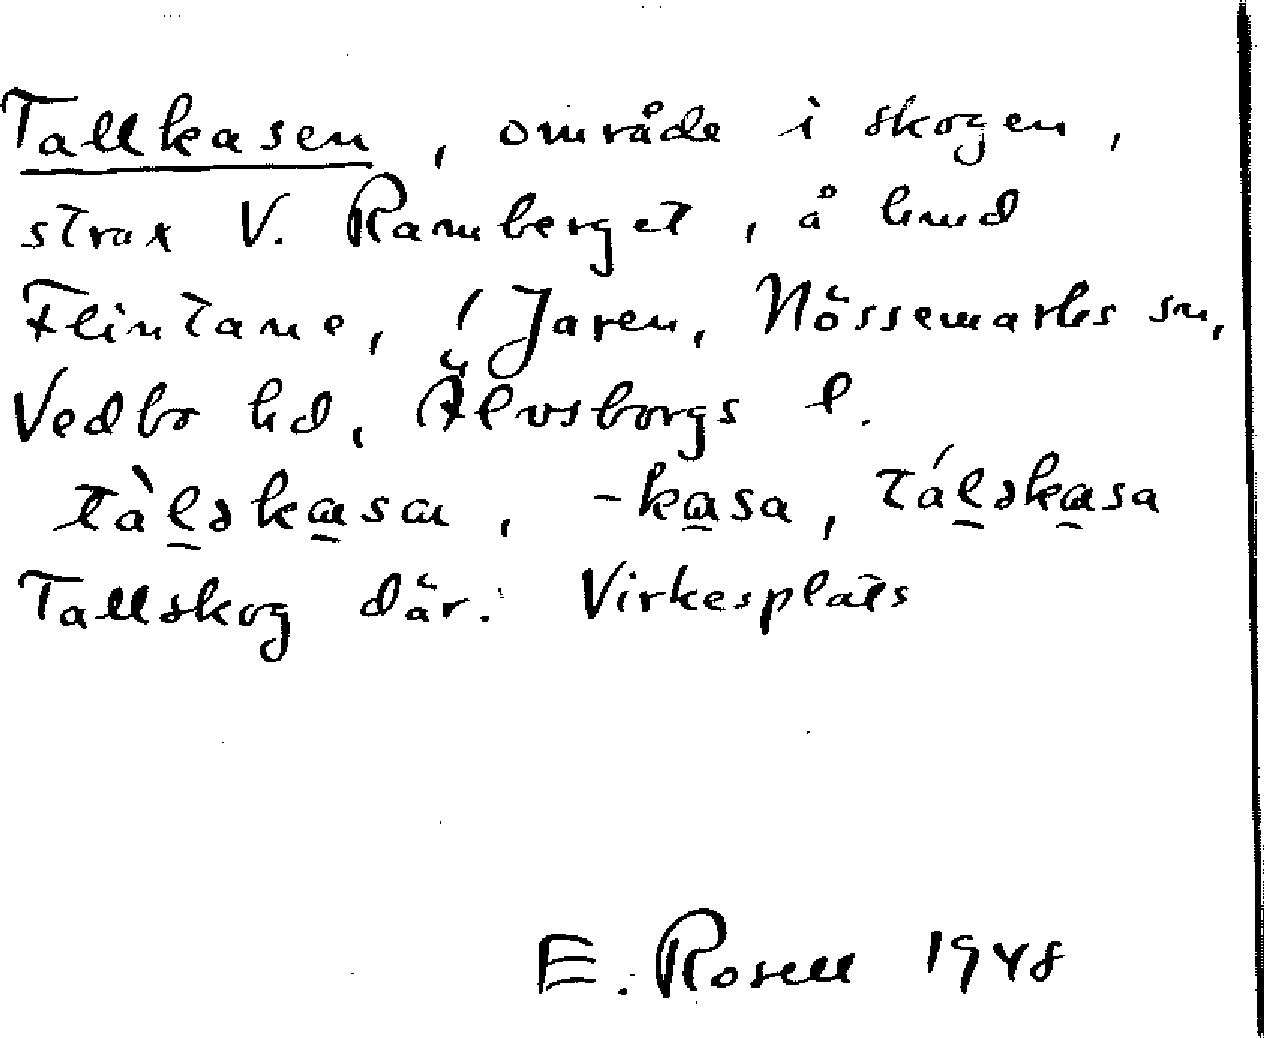 Tallkasen, område i skogen,
strax V. Ramberget, å hmd
Flintane, i Jaren, Nössemarks sn,
Vedbo hd, Älvsborgs l.
tàl̠ska̠sa, -ka̠sa, tál̠ska̠sa
Tallskog där. Virkesplats
E. Rosell 1948